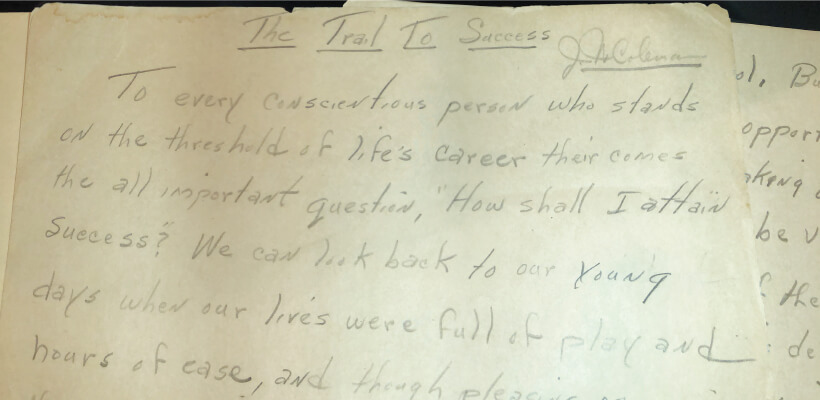 The Trail To Success
J. W. Coleman
To every conscientious person who stands
on the threshold of life's career their comes
the all important question, "How shall I attain
Success?" We can look back to our young
days when our lives were full of play and
hours of ease, and though pleasing
ol. Bu
oppor
aking
be v
f the
de